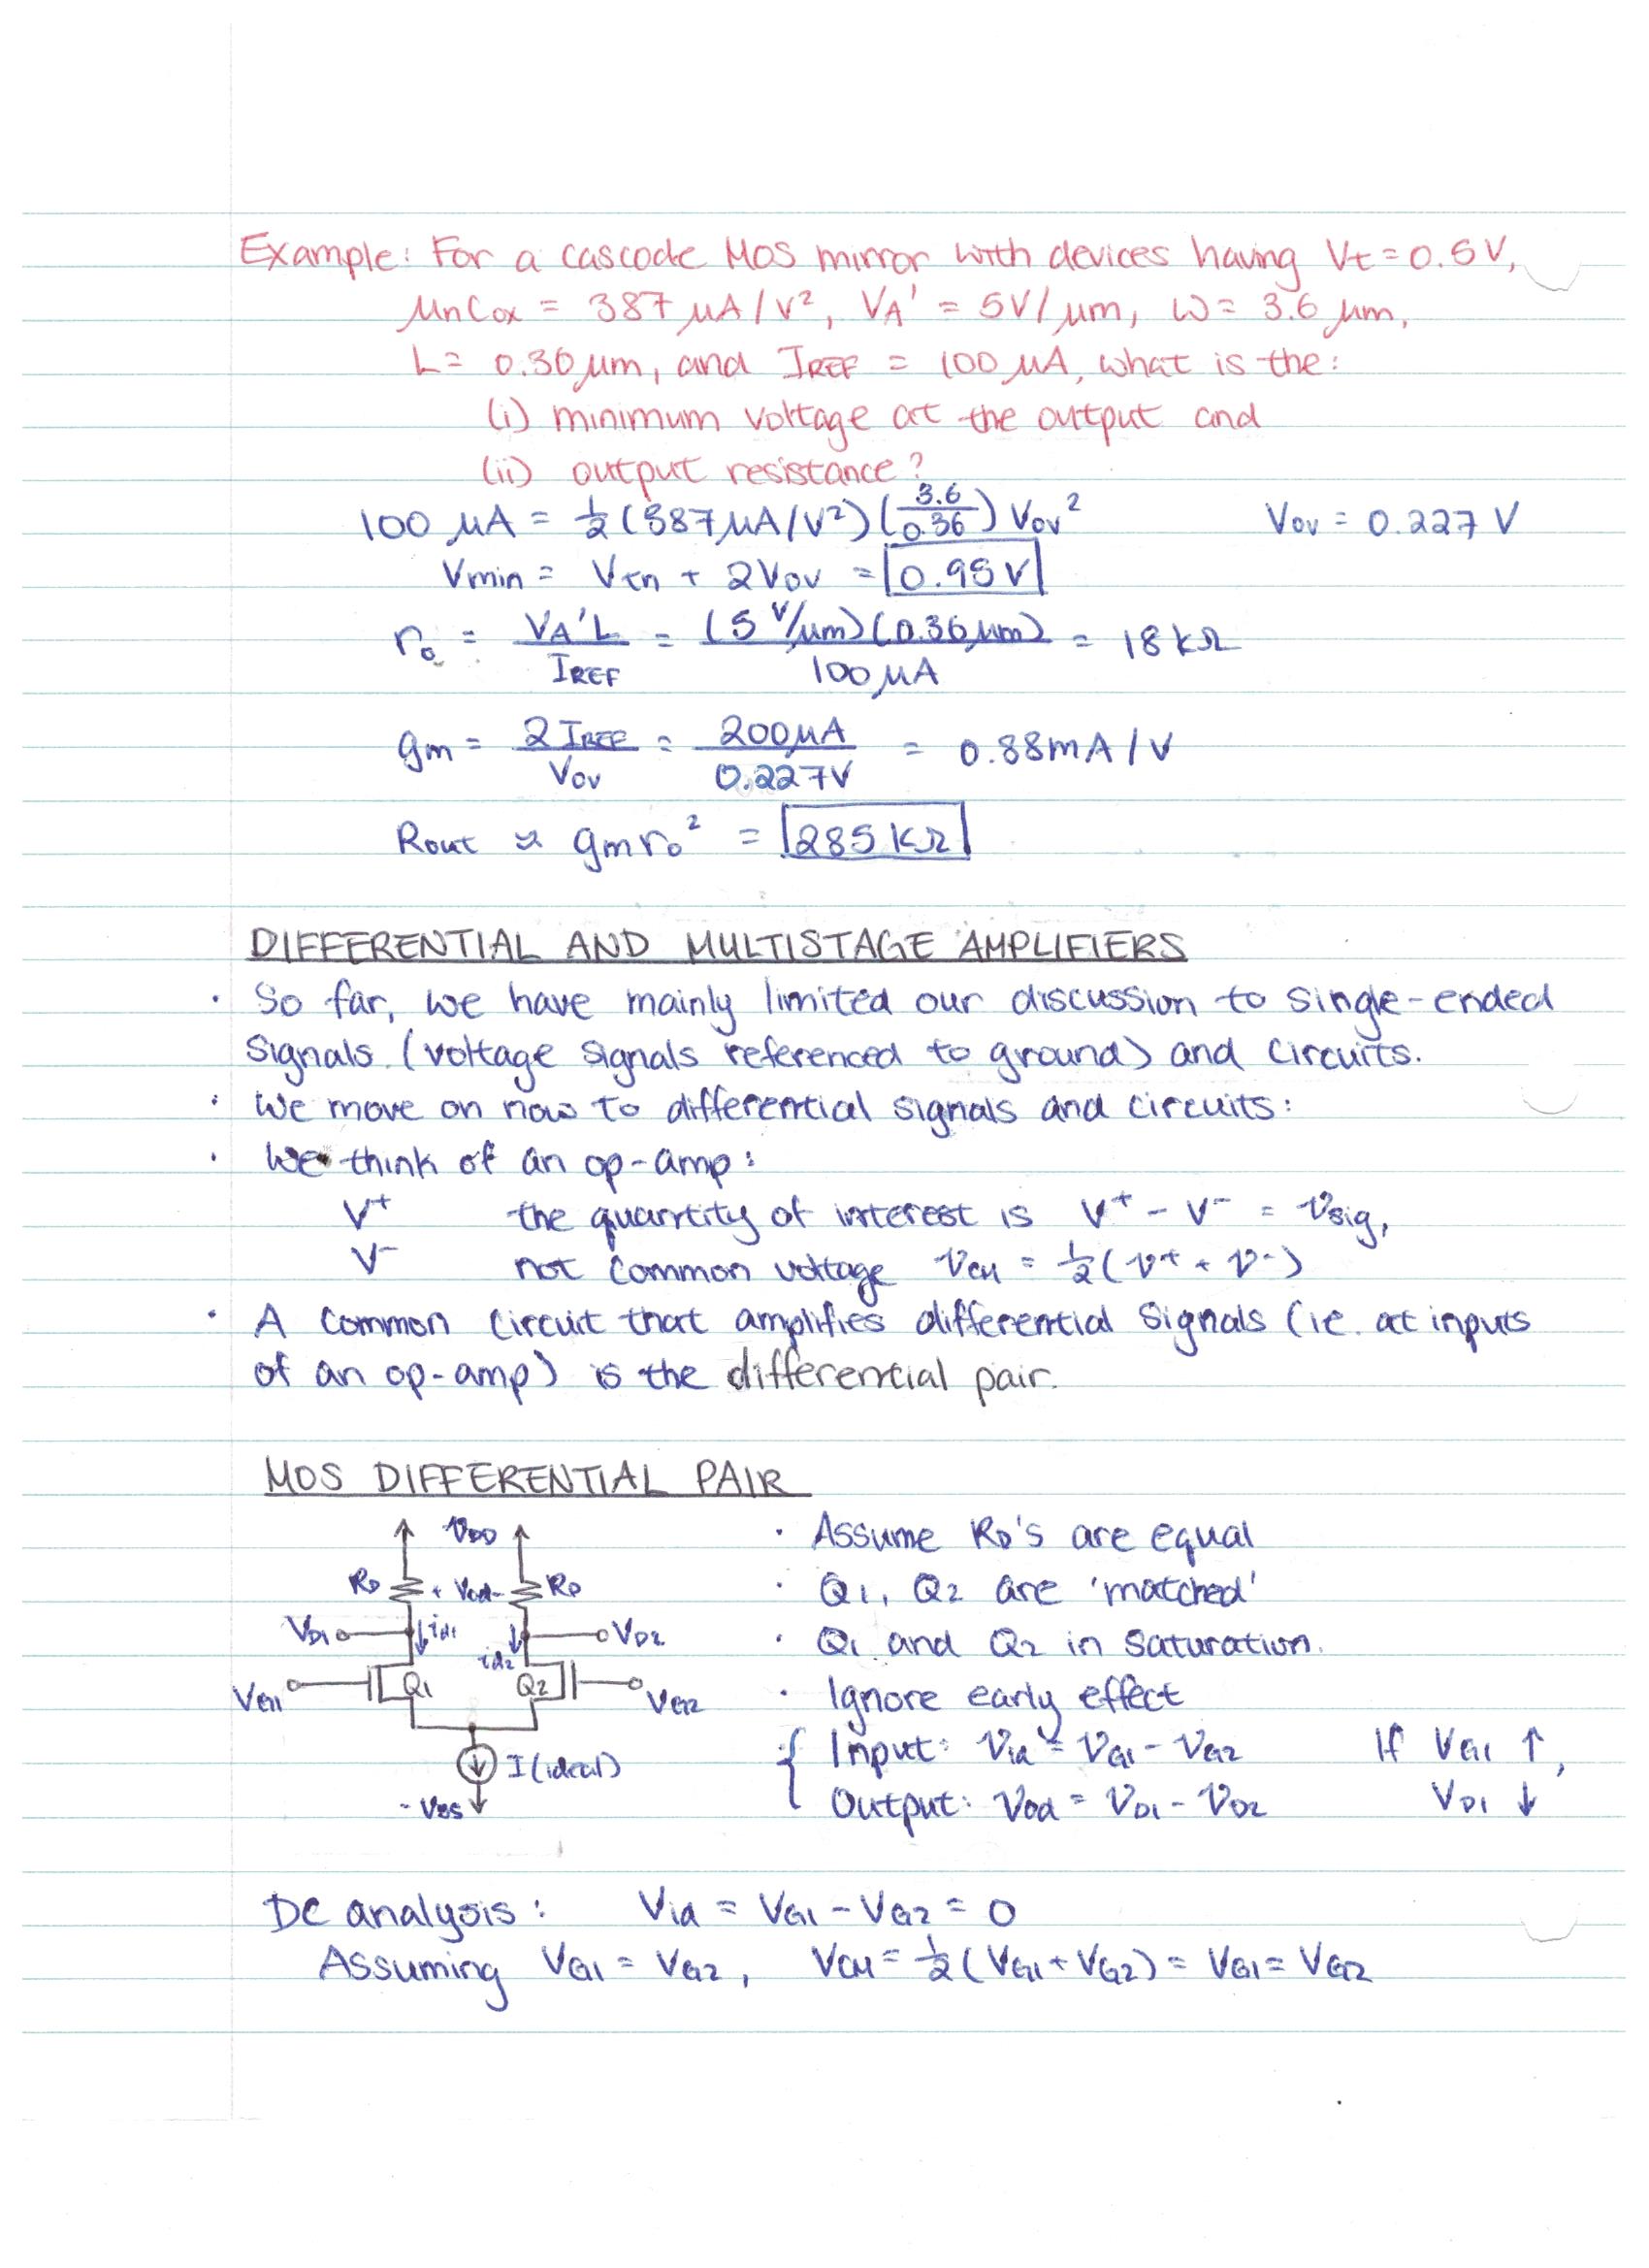 Example: For a cascode MOS mirror with devices having Vt = 0.5 V,
μnCox = 387 μA/V², VA' = 5V/μm, W = 3.6 μm,
L = 0.36 μm, and IREF = 100 μA, what is the:
(i) minimum voltage at the output and
(ii) output resistance?
100 μA = ½ (387 μA/V²) (3.6/0.36) Vov² Vov = 0.227 V
Vmin = Vtn + 2Vov = 0.95 V
ro = VA'L / IREF = (5 V/μm)(0.36 μm) / 100 μA = 18 kΩ
gm = 2 IREF / Vov = 200 μA / 0.227V = 0.88 mA/V
Rout ≈ gmro² = 285 kΩ
DIFFERENTIAL AND MULTISTAGE AMPLIFIERS
· So far, we have mainly limited our discussion to single-ended
signals (voltage signals referenced to ground) and circuits.
· We move on now to differential signals and circuits:
· We think of an op-amp:
V⁺ the quantity of interest is V⁺ - V⁻ = vsig,
V⁻ not common voltage vCM = ½ (v⁺ + v⁻)
· A common circuit that amplifies differential signals (ie. at inputs
of an op-amp) is the differential pair.
MOS DIFFERENTIAL PAIR
VDD · Assume RD's are equal
RD + Vod - RD · Q1, Q2 are 'matched'
VD1 id1 id2 VD2 · Q1 and Q2 in saturation.
VG1 Q1 Q2 VG2 · Ignore early effect
I (ideal) Input: vid = vG1 - vG2 If VG1 ↑,
- VSS Output: Vod = vD1 - vD2 VD1 ↓
DC analysis: Vid = VG1 - VG2 = 0
Assuming VG1 = VG2, VCM = ½ (VG1 + VG2) = VG1 = VG2